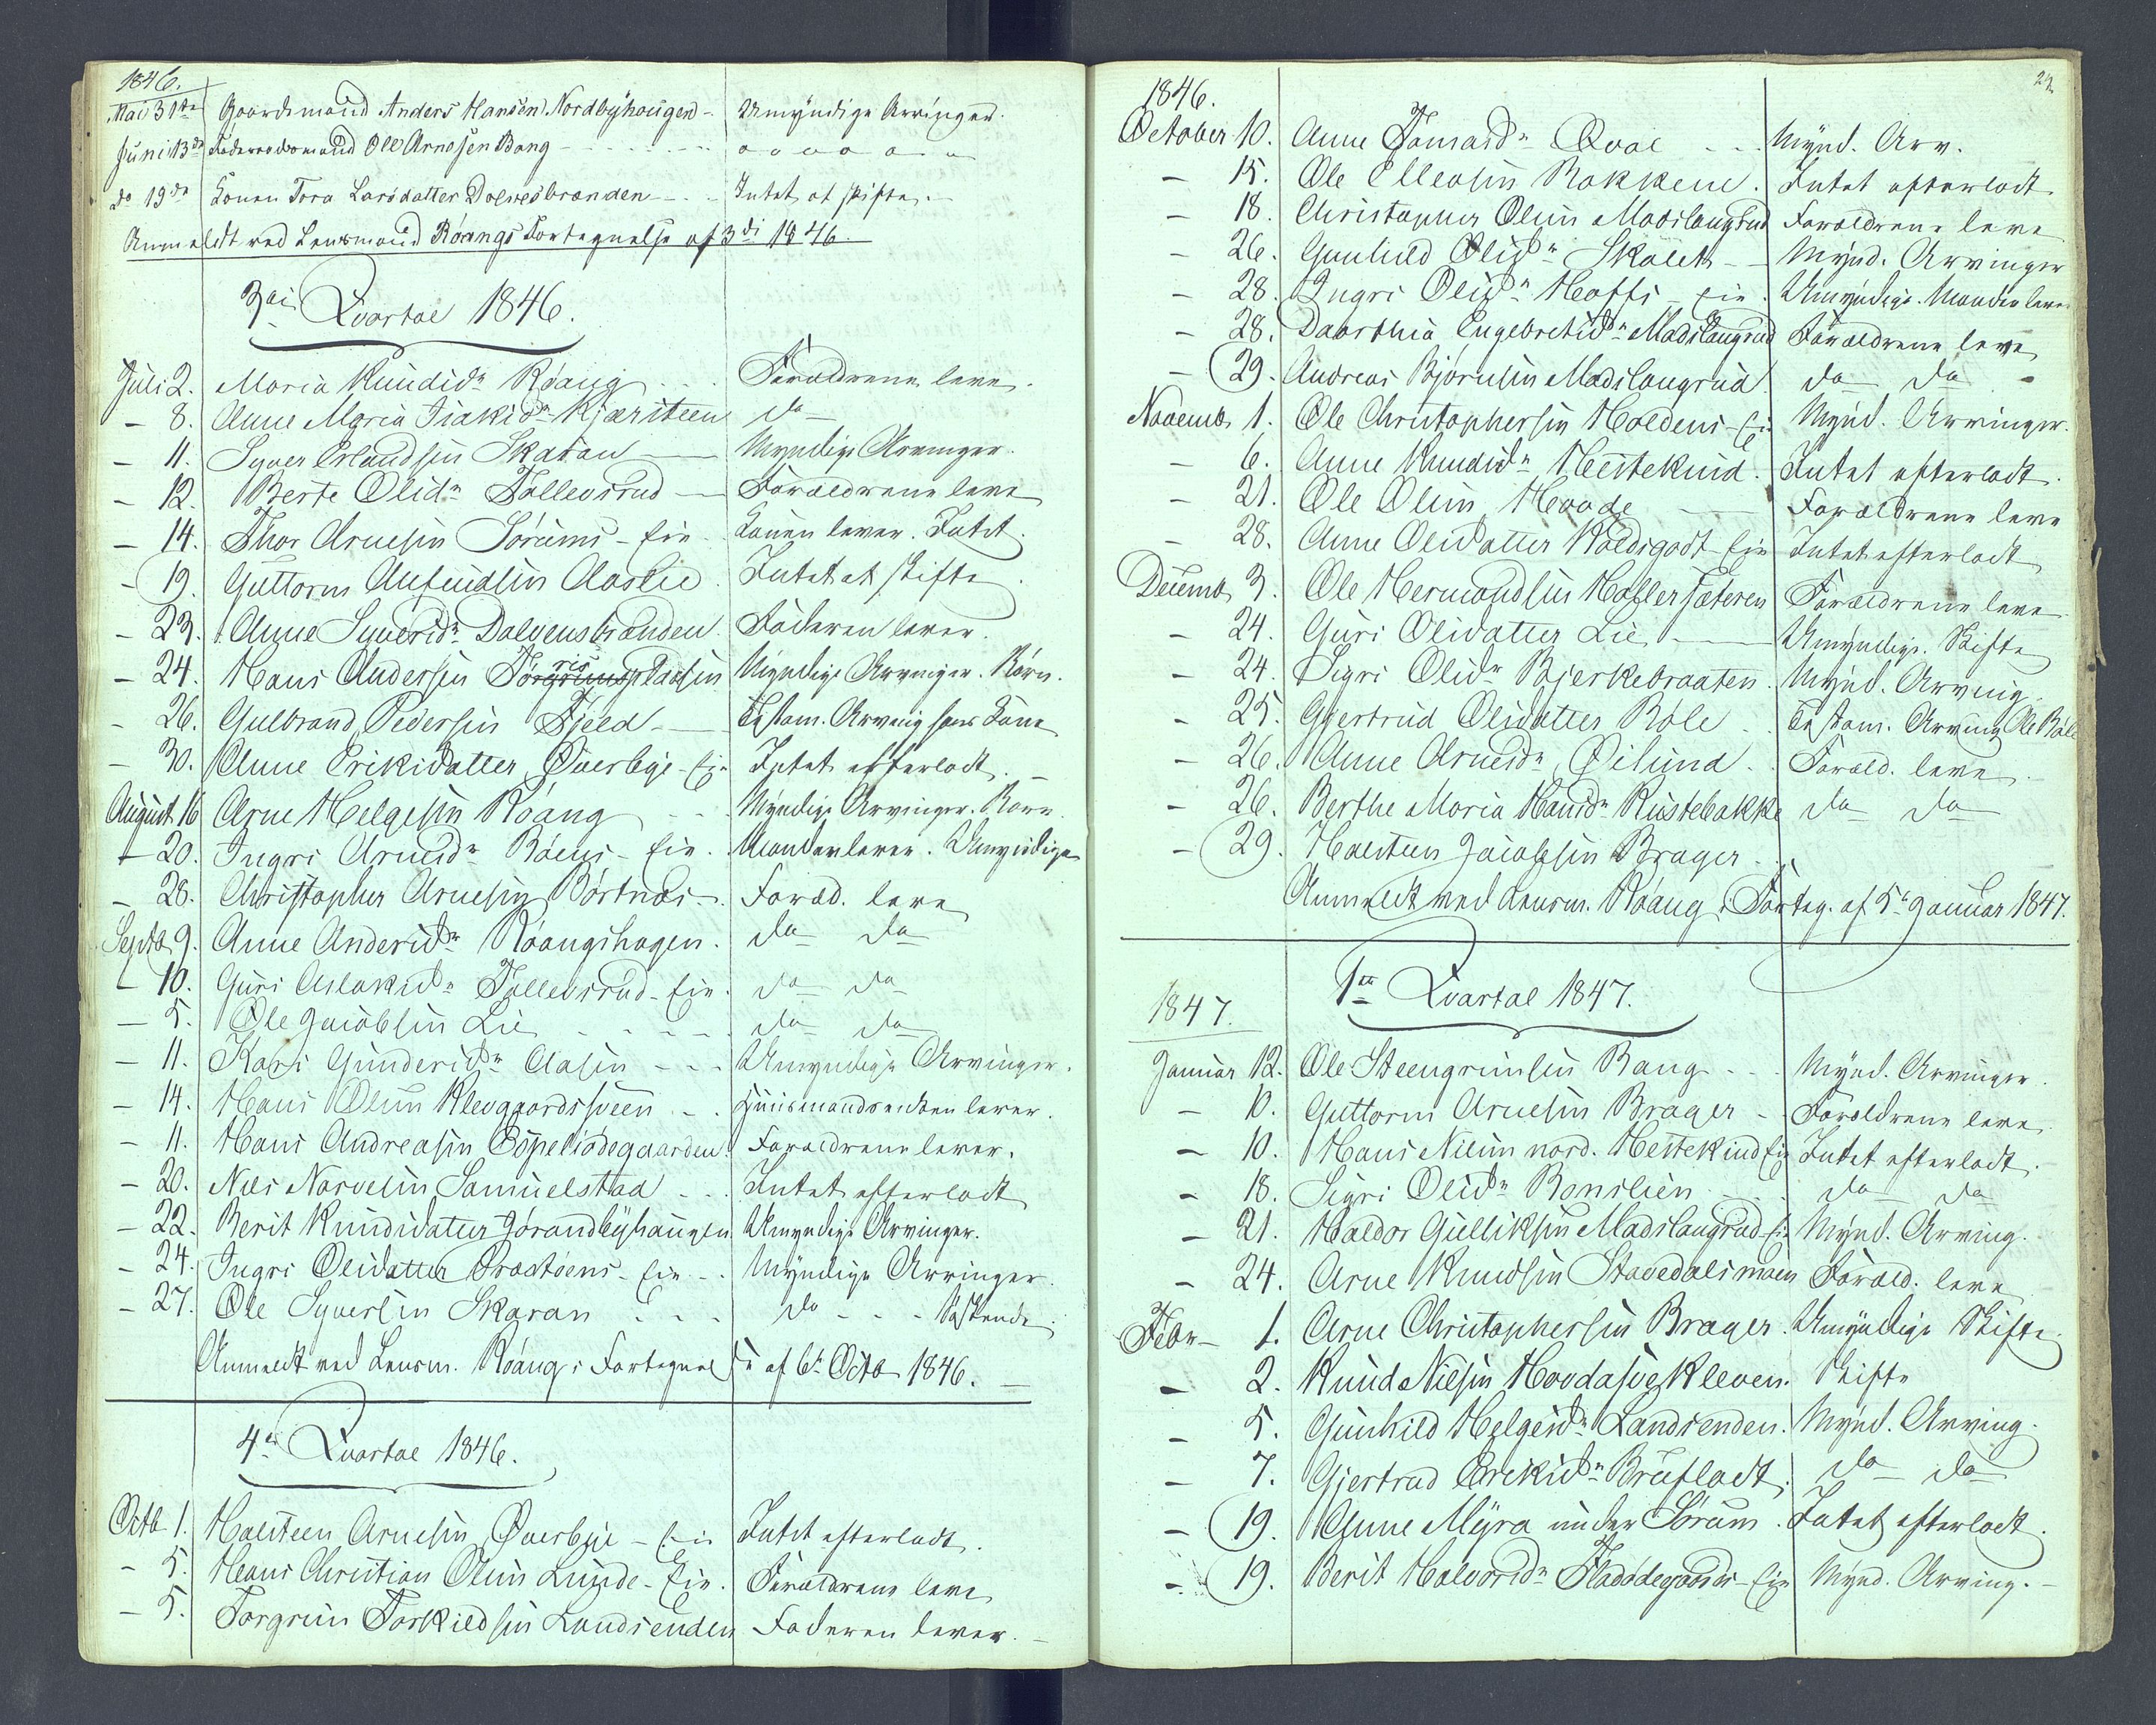 1846.
Mai 31te Gaardmand Anders Hansen Nordbyhougen - Umyndige Arvinger.
Juni 13de Føderaadsmand Ole Arnesen Bang - - - - -
do 19de Konen Tora Larsdatter Dølvesbrænden - - - Intet at skifte.
Anmeldt ved Lensmand Røangs Fortegnelse af 3di 1846.
3die Qvartal 1846.
Juli 2. Maria Knudsdr Røang - - - Forældrene leve.
- 8. Anne Maria Isaksdr Kjærsteen do
- 11. Syver Erlandsen Skaran - Myndige Arvinger.
- 12. Berte Olsdr Tollevsrud - Forældrene leve
- 14. Thor Arnesen Sørums-Eie Konen lever. Intet.
- 19. Guttorm Aufindsen Aaslie. Intet at skifte.
- 23. Anne Syversdr Dølvensbrænden. Faderen lever.
- 24. Hans Andersen Myndige Arvinger. Børn.
- 26. Gulbrand Pedersen Fjeld - Testam. Arving hans Kone
- 30. Anne Eriksdatter Øverbye-Eie Intet efterladt. -
August 16 Arne Helgesen Røang - - Myndige Arvinger. Børn.
- 20. Ingri Arnesdr Bøens-Eie. Manden lever. Umyndige
- 28. Christopher Arnesen Børtnæs - Foræld. leve
Septb 9. Anne Andersdr Røangshagen. do do
- 10. Guri Aslaksdr Tollevsrud-Eie. do do
- 5. Ole Jacobsen Lie - - - - do do
- 11. Kari Gundersdr Aasen - - - Umyndige Arvinger.
- 14. Hans Olsen Klevgaardssveen - . Huusmandsenken lever.
- 11. Hans Andreasen Espeliødegaarden. Forældrene lever.
- 20. Nils Narvesen Samuelstad - . . Intet efterladt
- 22. Berit Knudsdatter Gørandbyhaugen Umyndige Arvinger.
- 24. Ingri Olsdatter Præstøens-Eie - . Myndige Arvinger.
- 27. Ole Syversen Skaran - - - do - - - Søskende.
Anmeldt ved Lensm. Røang i Fortegnelse af 6te Octb 1846. -
4de Qvartal 1846.
Octb 1. Halsteen Arnesen Øverbye-Eie Intet efterladt.
- 5. Hans Christian Olsen Lunde-Eie. Forældrene leve
- 5. Torgrim Torkildsen Landsenden Faderen lever. -
24.
1846.
October 10. Anne Tomasdr Qvale - - . Mynd. Arv.
- 15. Ole Ellevsen Bakkene. Intet efterladt
- 18. Christopher Olsen Madslangrud Forældrene leve
- 26. Gunhild Olsdr - - Mynd. Arvinger
- 28. Ingri Olsdr Hoffs-Eie. Umyndige. Manden lever
- 28. Dorthia Engebretsdr Madslangrud Forældrene leve
- 29. Andreas Bjørnsen Madslangrud do do -
Novemb. 1. Ole Christophersen Haldens-Eie Mynd. Arvinger.
- 6. Anne Knudsdr Hestekind. Intet efterladt.
- 21. Ole Olsen Hovde - Forældrene leve
- 28. Anne Olsdatter Koldsgodt-Eie Intet efterladt
Decemb. 3. Ole Hermandsen Haflersæteren Forældrene leve
- 24. Guri Olsdatter Lie - Umyndige. Skifte
- 24. Sigri Olsdr Bjerkebraaten. Mynd. Arving.
- 25. Gjertrud Olsdatter Bøle . . Testam. Arving Ole Bøle
- 26. Anne Arnesdr Øilund. . Foræld. leve.
- 26. Berthe Maria Hansdr Rustebakke do do
- 29. Halsteen Jacobsen Brager . .
Anmeldt ved Lensm. Røang i Forteg. af 5te Januar 1847.
1ste Qvartal 1847.
1847.
Januar 12. Ole Steengrimsen Bang - - . Mynd. Arvinger.
- 10. Guttorm Arnesen Brager - . Forældrene leve.
- 10. Hans Nilsen nord. Hestekind Eie Intet efterladt.
- 18. Sigri Olsdr Bonslien - - . do do
- 21. Haldor Gulliksen Madslangrud-Eie Mynd. Arving.
- 24. Arne Knudsen Stavedalsmoen Foræld. leve
Febr - 1. Arne Christophersen Brager. Umyndige Skifte.
- 2. Knud Nilsen Hovdasvekleven. Skifte
- 5. Gunhild Helgesdr Landsenden. Mynd. Arving.
- 7. Gjertrud Eriksdr Bruflodt. do do
- 19. Anne Myra under Sørum. Intet efterladt.
- 19. Berit Halvorsdr Fladødegaards-Eie Mynd. Arving. -